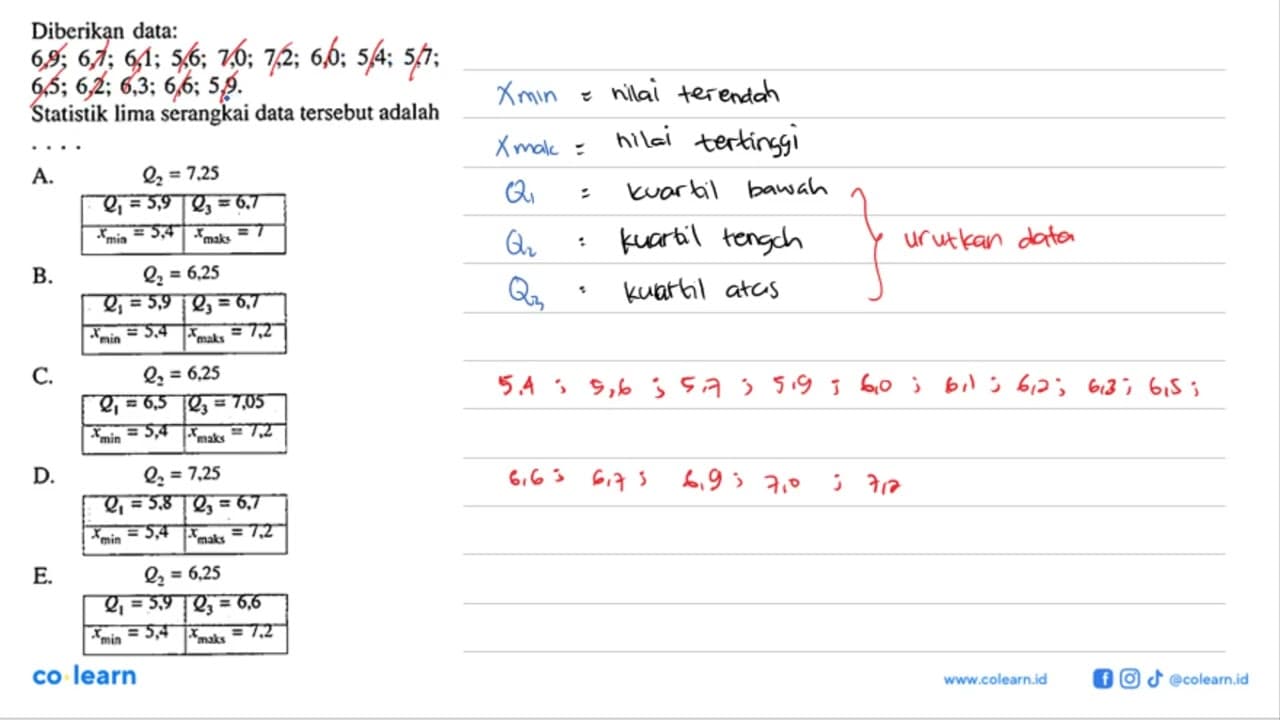 Diberikan data:
6,9; 6,7; 6,1; 5,6; 7,0; 7,2; 6,0; 5,4; 5,7;
6,5; 6,2; 6,3; 6,6; 5,9.
Statistik lima serangkai data tersebut adalah
. . . .
A. Q₂ = 7,25
Q₁ = 5,9 Q₃ = 6,7
xmin = 5,4 xmaks = 7
B. Q₂ = 6,25
Q₁ = 5,9 Q₃ = 6,7
xmin = 5,4 xmaks = 7,2
C. Q₂ = 6,25
Q₁ = 6,5 Q₃ = 7,05
xmin = 5,4 xmaks = 7,2
D. Q₂ = 7,25
Q₁ = 5,8 Q₃ = 6,7
xmin = 5,4 xmaks = 7,2
E. Q₂ = 6,25
Q₁ = 5,9 Q₃ = 6,6
xmin = 5,4 xmaks = 7,2
Xmin = nilai terendah
Xmak = nilai tertinggi
Q₁ = kuartil bawah
Q₂ : kuartil tengah
Q₃ : kuartil atas
urutkan data
5,4 ; 5,6 ; 5,7 ; 5,9 ; 6,0 ; 6,1 ; 6,2 ; 6,3 ; 6,5 ;
6,6 ; 6,7 ; 6,9 ; 7,0 ; 7,2
co learn
www.colearn.id
@colearn.id